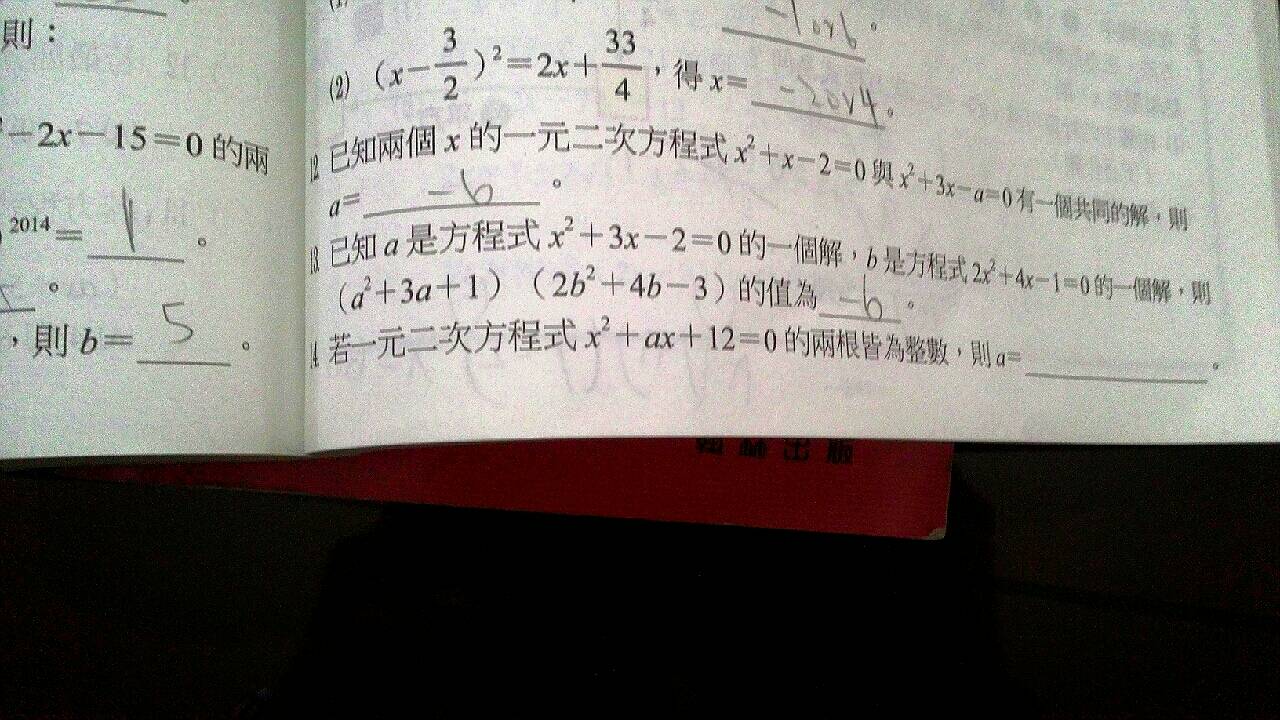 則：
-2x-15=0 的兩
2014 = 1 。
。
，則 b= 5 。
-1 or 6 。
(2) (x-3/2)²=2x+33/4，得 x= -2 or 4 。
12 已知兩個 x 的一元二次方程式 x²+x-2=0 與 x²+3x-a=0 有一個共同的解，則
a= -6 。
13 已知 a 是方程式 x²+3x-2=0 的一個解，b 是方程式 2x²+4x-1=0 的一個解，則
(a²+3a+1)(2b²+4b-3) 的值為 -6 。
14 若一元二次方程式 x²+ax+12=0 的兩根皆為整數，則 a= 。
出版